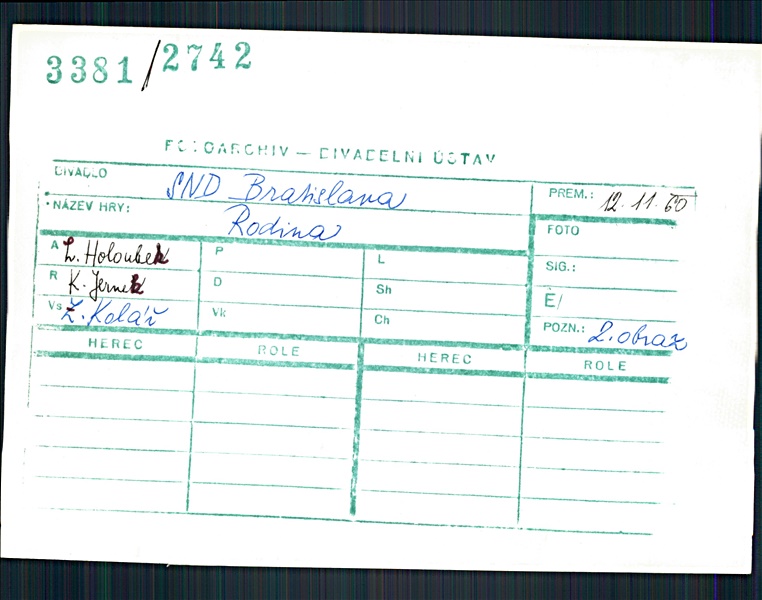 3381/2742
FOTOARCHIV — DIVADELNÍ ÚSTAV
DIVADLO SND Bratislava PREM.: 12.11.60
NÁZEV HRY: Rodina FOTO
A L. Holoubek P L SIG.:
R K. Jernek D Sh Č/
Vs Z. Kolář Vk Ch POZN.: 2. obraz
HEREC ROLE HEREC ROLE